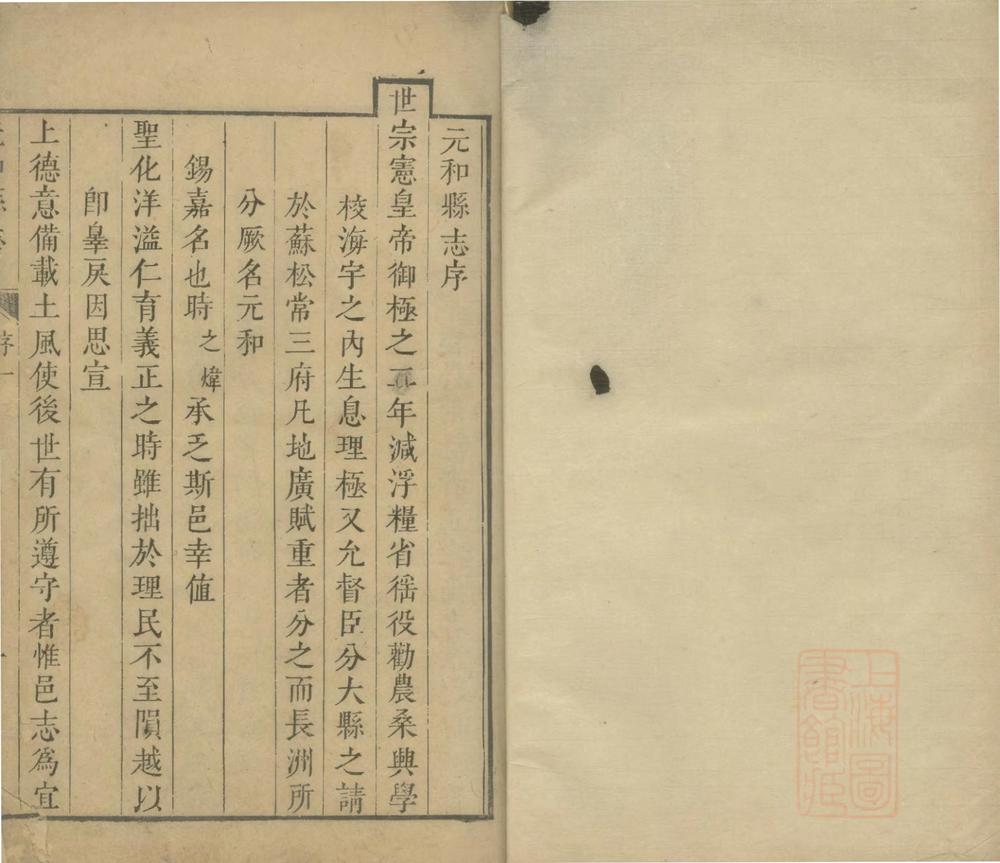 上海圖
書館藏
元和縣志序
世宗憲皇帝御極之二年減浮糧省徭役勸農桑興學
校海宇之內生息理極又允督臣分大縣之請
於蘇松常三府凡地廣賦重者分之而長洲所
分厥名元和
錫嘉名也時之煒承乏斯邑幸值
聖化洋溢仁育義正之時雖拙於理民不至隕越以
卽辠戾因思宣
上德意備載土風使後世有所遵守者惟邑志爲宜
序一